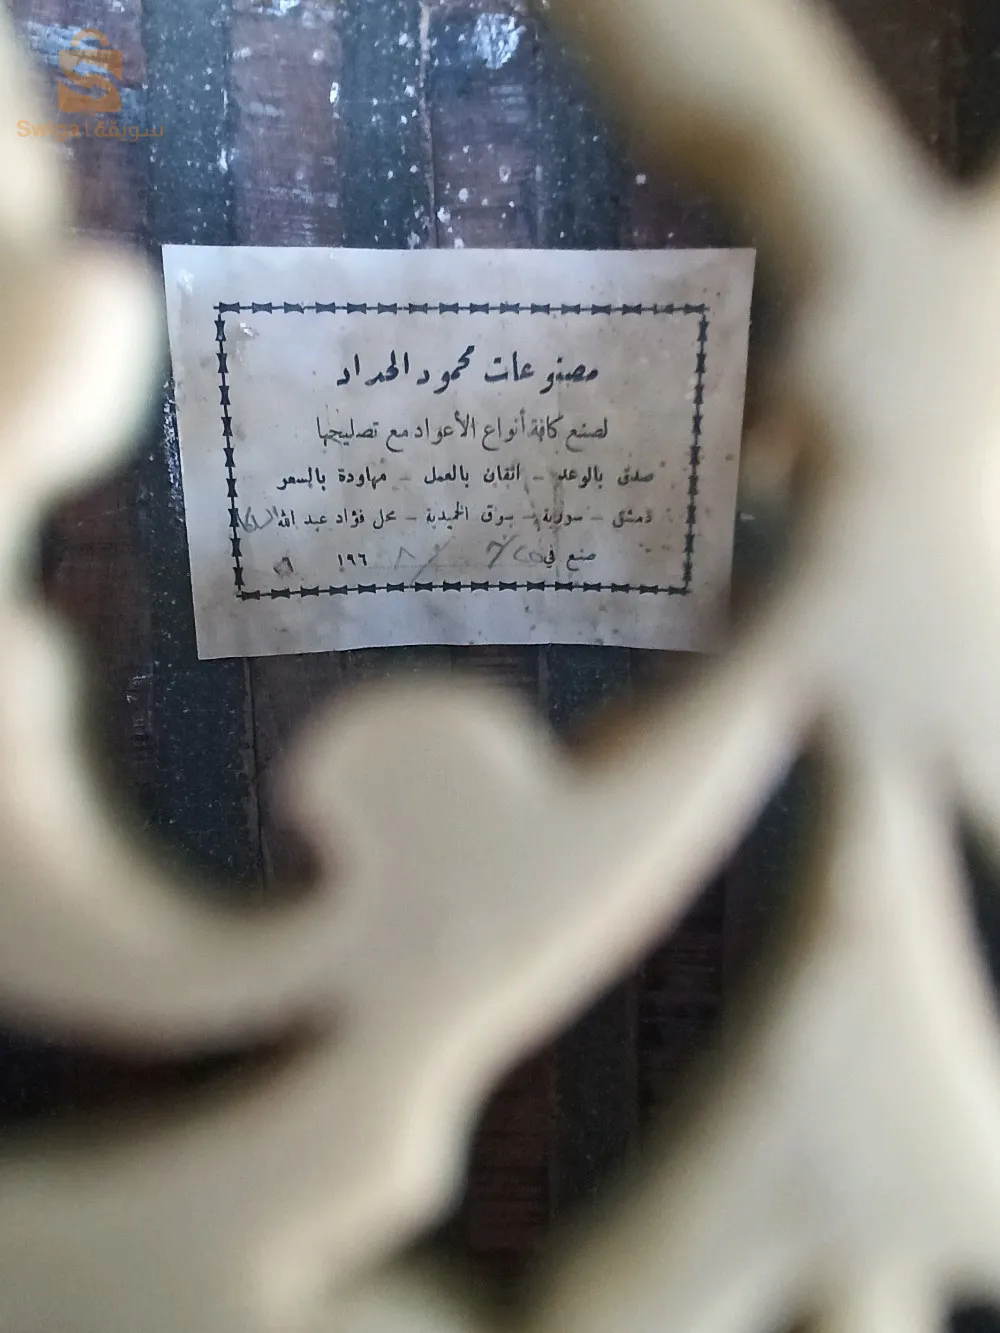 Swiqa | سويقة
مصنوعات محمود الحداد
لصنع كافة أنواع الأعواد مع تصليحها
صدق بالوعد - اتقان بالعمل - مهاودة بالسعر
دمشق - سورية - سوق الحميدية - محل فؤاد عبد الله
صنع في ١٩٦